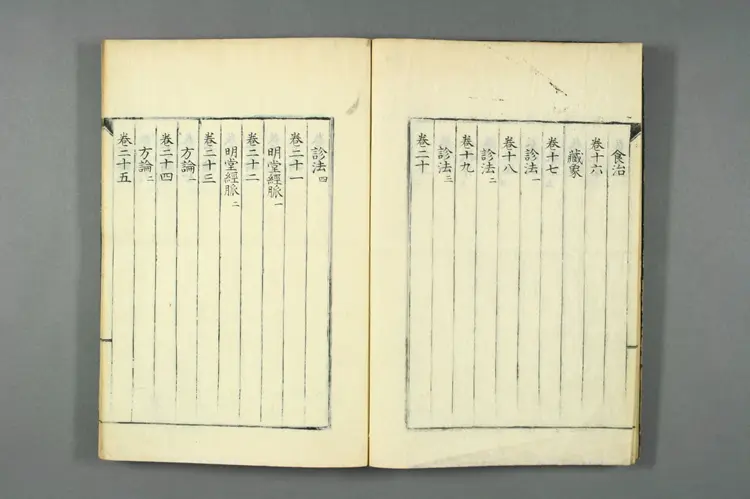 食治
卷十六
藏象
卷十七
診法一
卷十八
診法二
卷十九
診法三
卷二十
診法四
卷二十一
明堂經脈一
卷二十二
明堂經脈二
卷二十三
方論一
卷二十四
方論二
卷二十五